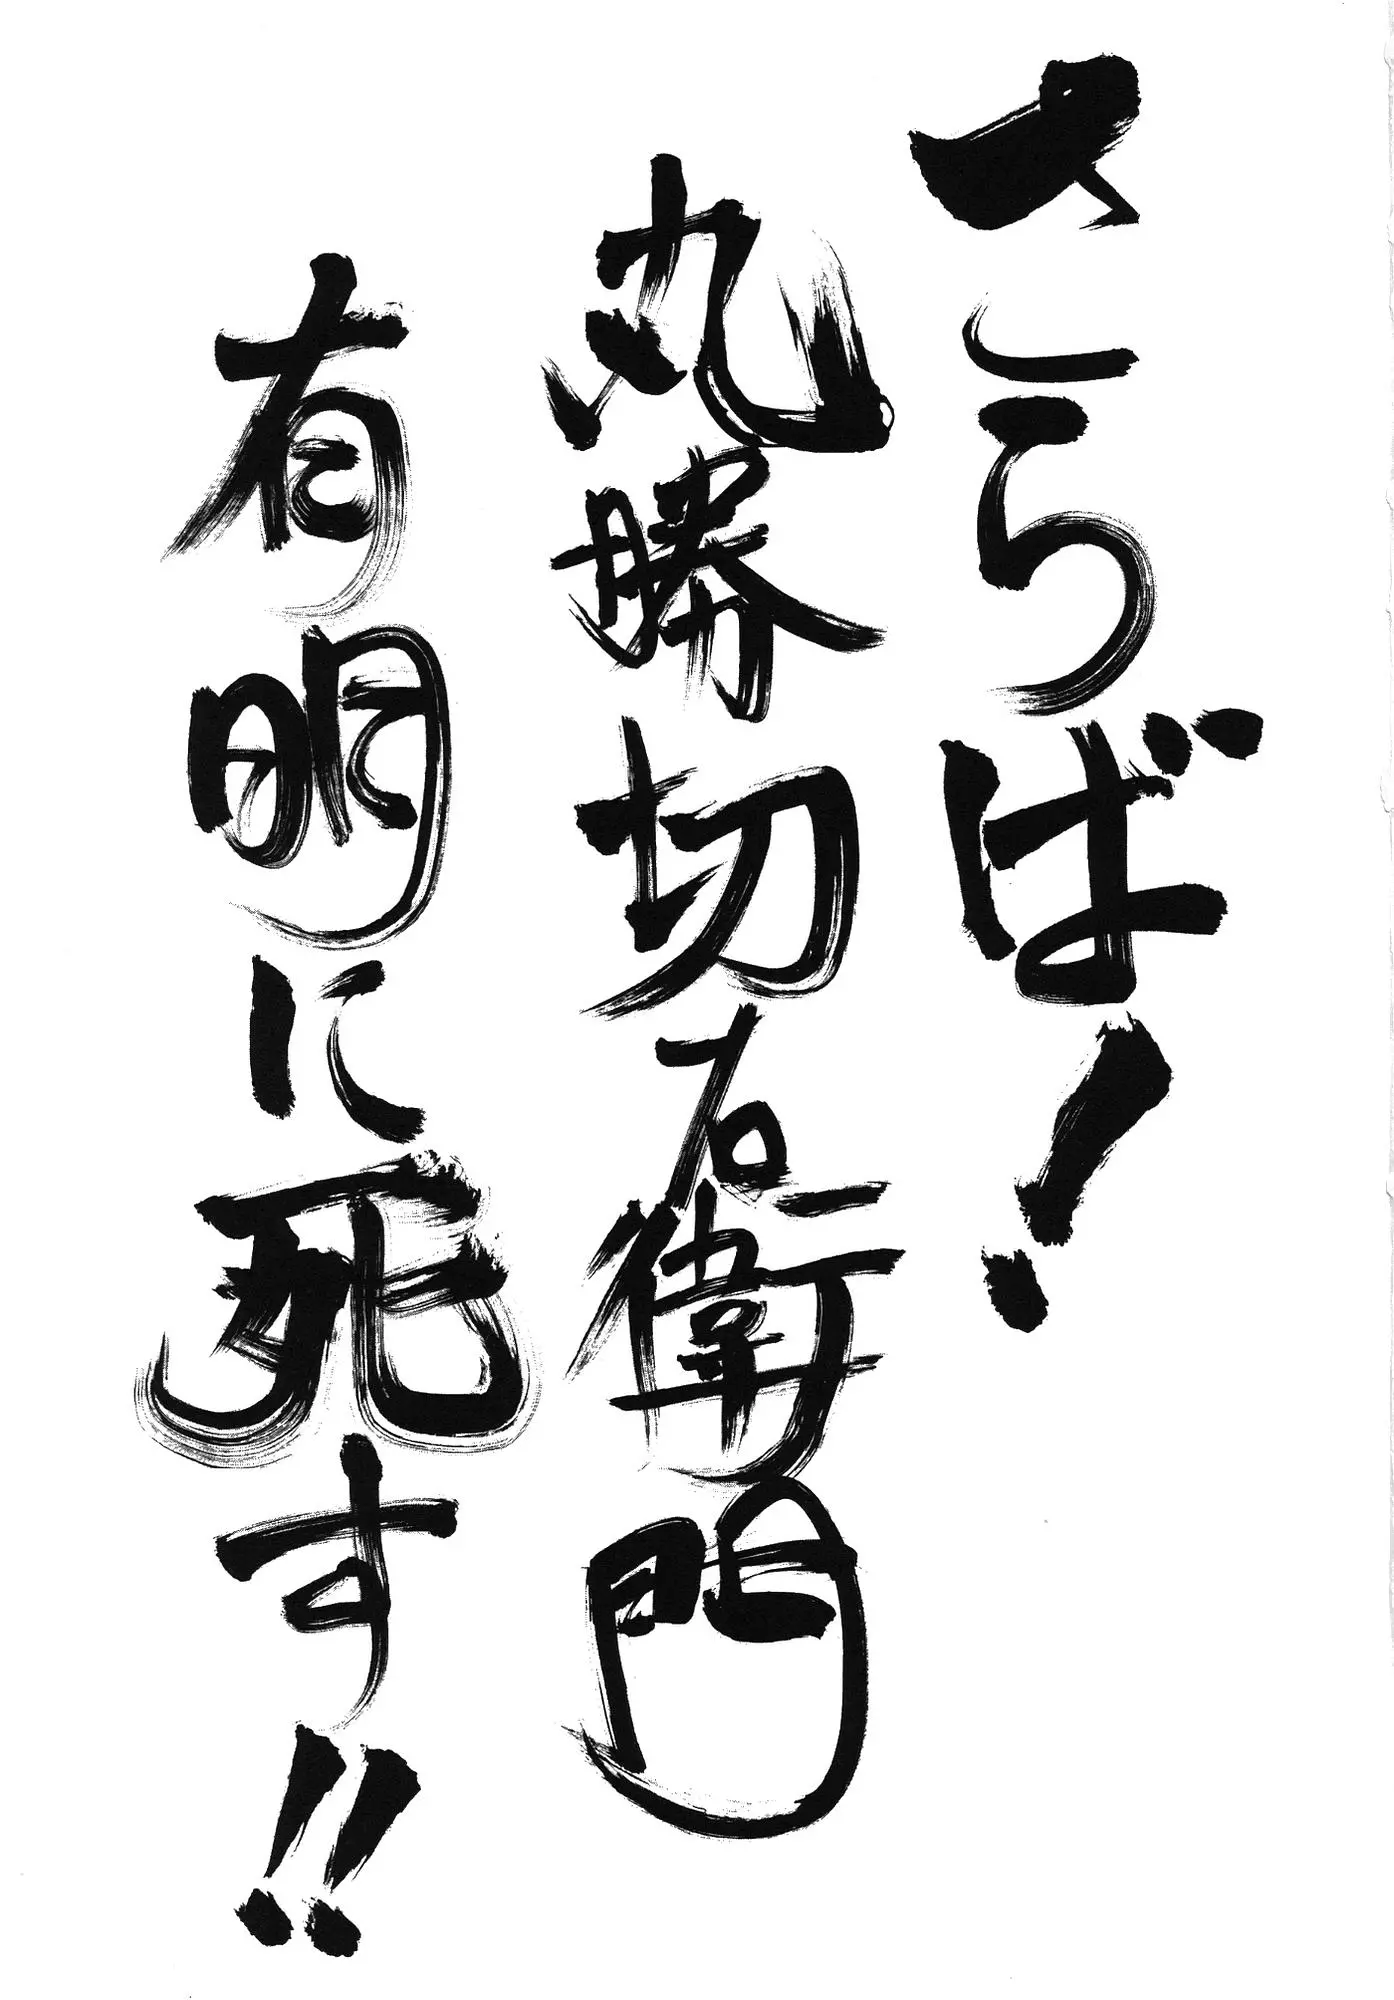 さらば!
丸勝切右衛門
有明に死す!!